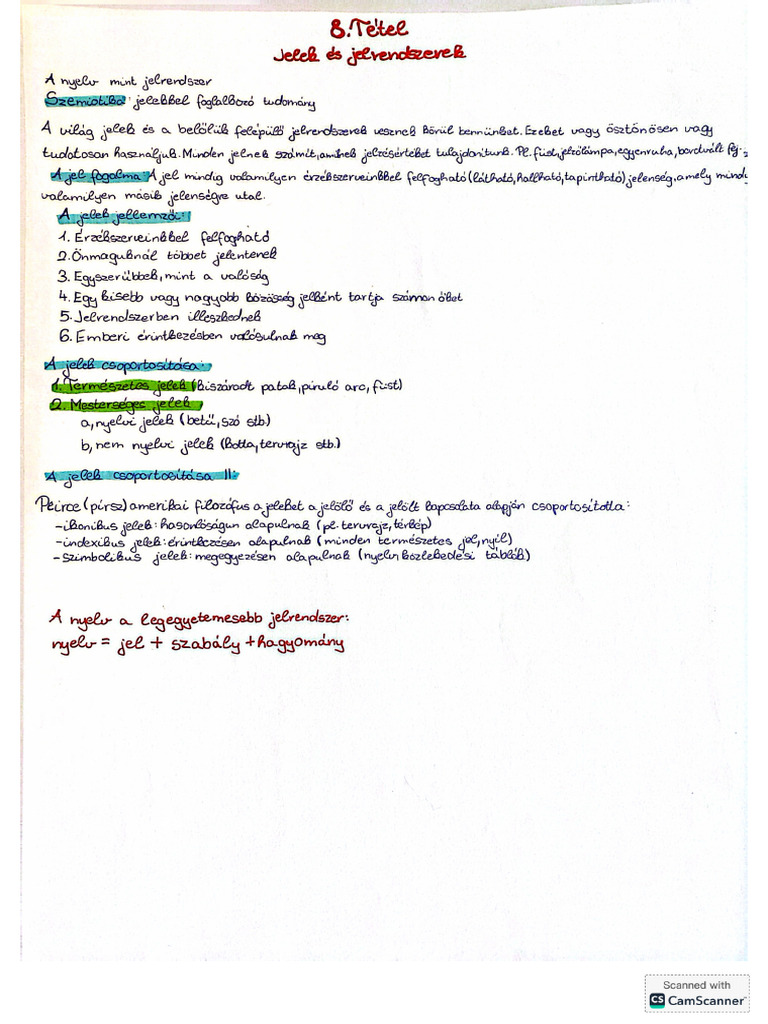 8. Tétel
Jelek és jelrendszerek
A nyelv mint jelrendszer
Szemiotika: jelekkel foglalkozó tudomány
A világ jelek és a belőlük felépülő jelrendszerek vesznek körül bennünket. Ezeket vagy ösztönösen vagy
tudatosan használjuk. Minden jelnek számít, aminek jelzésértéket tulajdonítunk. Pl. füst, jelzőlámpa, egyenruha,
A jel fogalma A jel mindig valamilyen érzékszerveinkkel felfogható (látható, hallható, tapintható) jelenség, amely mindig
valamilyen másik jelenségre utal.
A jelek jellemzői:
1. Érzékszerveinkkel felfogható
2. Önmaguknál többet jelentenek
3. Egyszerűbbek, mint a valóság
4. Egy kisebb vagy nagyobb közösség jelként tartja számon őket
5. Jelrendszerben illeszkednek
6. Emberi érintkezésben valósulnak meg
A jelek csoportosítása:
1. Természetes jelek (kiszáradt patak, piruló arc, füst)
2. Mesterséges jelek
a, nyelvi jelek (betű, szó stb.)
b, nem nyelvi jelek (kotta, tervrajz stb.)
A jelek csoportosítása II:
Peirce (pírsz) amerikai filozófus a jeleket a jelölő és a jelölt kapcsolata alapján csoportosította:
-ikonikus jelek: hasonlóságun alapulnak (pl. tervrajz, térkép)
-indexikus jelek: érintkezésen alapulnak (minden természetes jel, nyíl)
-szimbolikus jelek: megegyezésen alapulnak (nyelv, közlekedési táblák)
A nyelv a legegyetemesebb jelrendszer:
nyelv = jel + szabály + hagyomány
Scanned with
CS CamScanner